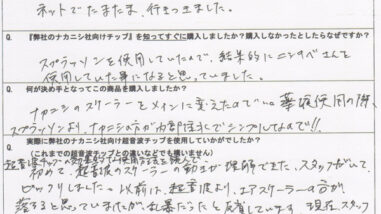 ネットでたまたま、行きつきました。
Q. 『弊社のナカニシ社向けチップ』を知ってすぐに購入しましたか？購入しなかったとしたらなぜですか？
スプラソンを使用していたので、結果的に
使用していた事になると思っていました。
Q. 何が決め手となってこの商品を購入しましたか？
ナカニシのスケーラーをメインに変えたので
スプラソンより、ナカニシの方が
Q. 実際に弊社のナカニシ社向け超音波チップを使用していかがでしたか？
（これまでの超音波チップとの違いなどでも構いません）
初めて、超音波のスケーラーの動きが理解できた、スタッフがいて
ビックリしました。以前は、超音波より、エアスケーラーの方が
落ちると思っていましたが、乱暴だったと反省しています。現在スタッフ